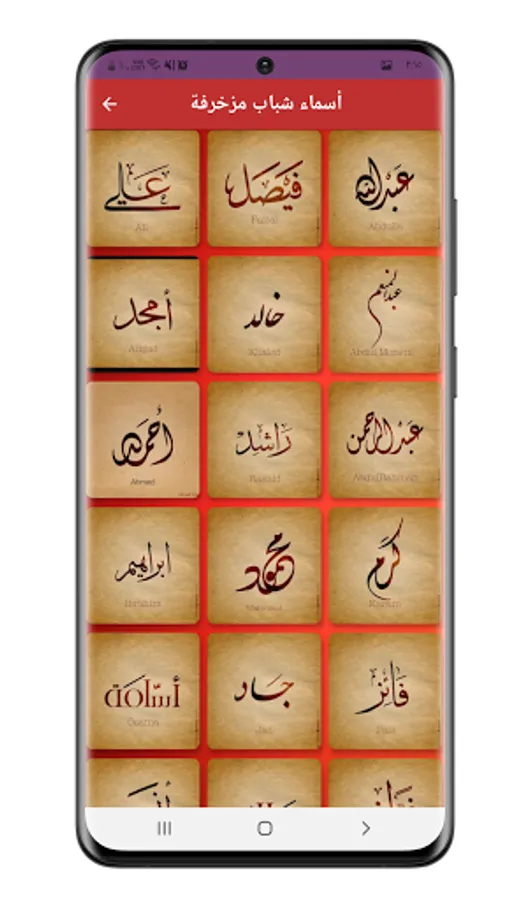 أسماء شباب مزخرفة
عبدالله فيصل علي
Abdulla Faisal Ali
عبدالمنعم خالد أمجد
Khaled Amgad
عبدالرحمن راشد أحمد
AbdulRahman Rashid Ahmed
كرم محمود ابراهيم
Karam Mahmoud Ibrahim
فائز جاد أسامة
Faiz Jad Osama